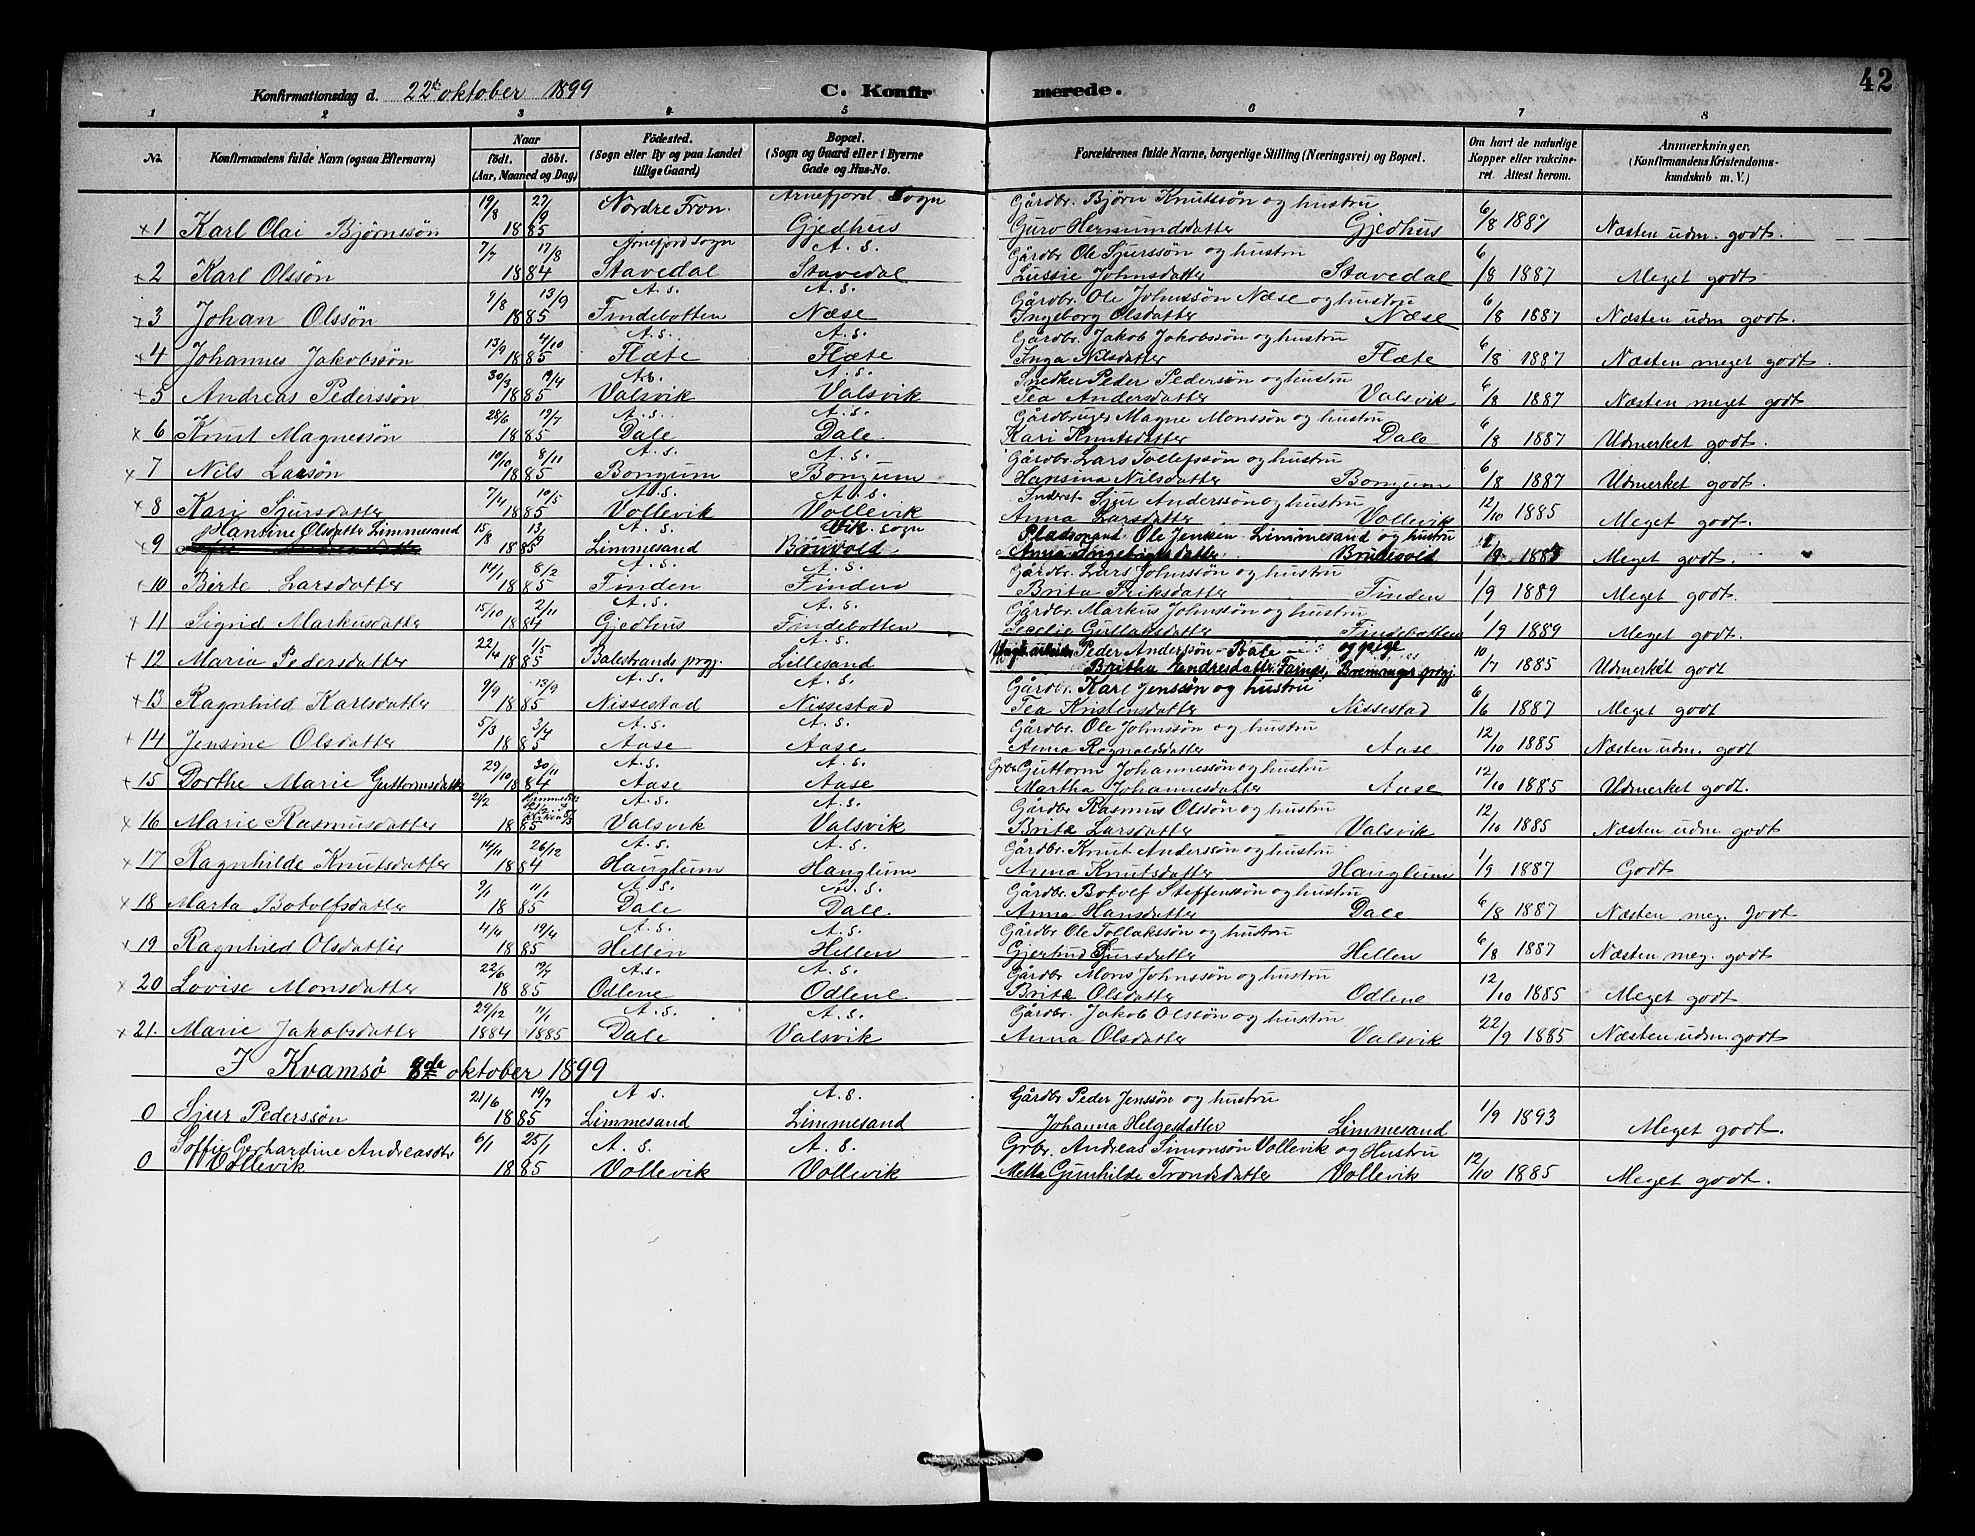 42
Konfirmationsdag d. 22de oktober 1899 C. Konfirmerede.
1 2 3 4 5 6 7 8
No. Konfirmandens fulde Navn (ogsaa Efternavn) Naar født. døbt. (Aar, Maaned og Dag) Fødested. (Sogn eller By og paa Landet tillige Gaard) Bopæl. (Sogn og Gaard eller i Byerne Gade og Hus-No. Forældrenes fulde Navne, borgerlige Stilling (Næringsvei) og Bopæl. Om havt de naturlige Kopper eller vakcineret. Attest herom. Anmærkninger. (Konfirmandens Kristendomskundskab m. V.)
19/8 27/9 Nordre Fron. Arnefjord Sogn Gårdbr. Bjørn Knutssøn og hustru 6
x 1 Karl Olai Bjørnssøn 1885 Gjedhus Guro Hermundsdatter Gjedhus /8 1887 Næsten udm. godt.
7/7 17/8 Arnefjord sogn A. S. Gårdbr Ole Sjurssøn og hustru 6
x 2 Karl Olssøn 1884 Stavedal Stavedal Lussie Johnsdatter Stavedal /8 1887 Meget godt
9/8 13/9 A. S. A. S. Gårdbr. Ole Johnssøn Næse og hustru 6
3 Johan Olssøn 1885 Findebotten Næse Ingeborg Olsdatter Næse /8 1887 Næsten udm godt
13/9 4/10 A. S. A. S. Gårdbr. Jakob Jakobssøn og hustru 6
x 4 Johannes Jakobssøn 1885 Flæte Flæte Inga Nilsdatter Flæte /8 1887 Næsten meget godt
30/3 19/4 A. S. A. S. Snedker Peder Pederssøn og hustru 6
x 5 Andreas Pederssøn 1885 Valsvik Valsvik Tea Andersdatter Valsvik /8 1887 Næsten meget godt
28/6 19/7 A. S. A. S. Gårdbruger Magne Monssøn og hustru 6
x 6 Knut Magnessøn 1885 Dale Dale. Kari Knutsdatter Dale /8 1887 Udmerket godt.
10/10 8/11 A. S. A. S. Gårdbr. Lars Tollefssøn og hustru 6
x 7 Nils Larsøn 1885 Bongum Bongum Hansina Nilsdatter Bongum /8 1887 Udmerket godt.
7/4 10/5 A. S. A. S. Inderst Sjur Anderssøn og hustru 12
x 8 Kari Sjursdatter 1885 Vollevik Vollevik Anna Larsdatter Vollevik /10 1885 Meget godt
Hansine Olsdatter Limmesand 15/8 13/9 A. S. Vik sogn Pladsmand Ole Jensen Limmesand og hustru
x 9 1885 Limmesand Anna Ingebrigtsdatter Brudevold /9 Meget godt.
14/1 8/2 A. S. A. S. Gårdbr. Lars Johnssøn og hustru 1
x 10 Birte Larsdatter 1885 Finden Finden Brita Eriksdatter Finden /9 1889 Meget godt.
15/10 2/11 A. S. A. S. Gårdbr. Markus Johnssøn og hustru 1
x 11 Sigrid Markusdatter 1884 Gjedhus Findebotten Cecelie Gullaksdatter Findebotten /9 1889 Meget godt.
22/4 1/5 A. S. Peder Anderssøn Bale og pige 10
x 12 Maria Pedersdatter 1885 Balestrands prgj. Lillesand Britha Andresdatter Farnes, Bremanger prgj. /7 1885 Udmerket godt
9/9 13/9 A. S. A. S. Gårdbr. Karl Jenssøn og hustru 6
x 13 Ragnhild Karlsdatter 1885 Nissestad Nissestad Tea Kristensdatter Nissestad /6 1887 Meget godt
5/3 3/4 A. S. A. S. Gårdbr. Ole Johnssøn og hustru 12
x 14 Jensine Olsdatter 1885 Aase Aase Anna Ragnaldsdatter Aase /10 1885 Næsten udm. godt
29/10 30/11 A. S. A. S. Grbr. Guttorm Johannessøn og hustru 12
x 15 Dorthe Marie Guttormsdatter 1884 Aase Aase Martha Johannesdatter Aase /10 1885 Udmerket godt.
21/2 A. S. A. S. Gårdbr Rasmus Olssøn og hustru 12
x 16 Marie Rasmusdatter 1885 Valsvik Valsvik Brite Larsdatter Valsvik /10 1885 Næsten udm godt
14/11 26/12 A. S. A. S. Gårdbr. Knut Anderssøn og hustru 1
x 17 Ragnhilde Knutsdatter 1884 Hanglum Hanglum Anna Knutsdatter Hanglum /9 1887 Godt
9/1 11/1 A. S. A. S. Gårdbr. Botolf Steffenssøn og hustru 6
x 18 Marta Botolfsdatter 1885 Dale Dale. Anna Hansdatter Dale /8 1887 Næsten meg. godt
4/4 19/4 A. S. A. S. Gårdbr Ole Tollakssøn og hustru 6
x 19 Ragnhild Olsdatter 1885 Hellen Hellen Gjertrud Sjursdatter Hellen /8 1887 Næsten meg. godt
22/6 19/7 A. S. A. S. Gårdbr Mons Johnssøn og hustru 12
x 20 Lovise Monsdatter 1885 Odlene Odlene Brite Olsdatter Odlene /10 1885 Meget godt
29/12 11/1 A. S. A. S. Gårdbr. Jakob Olssøn og hustru 22
x 21. Marie Jakobsdatter 1884 1885 Dale Valsvik Anna Olsdatter Valsvik /9 1885 Næsten udm. godt
I Kvamsø 8de oktober 1899
21/6 19/7 A S. A. S. Gårdbr Peder Jenssøn og hustru
0 Sjur Pederssøn 1885 Limmesand Limmesand Johanna Helgesdatter Limmesand 1/9 1893 Meget godt.
Soffie Gerhardine Andreasdtr 6/1 25/1 A. S. A. S. Grbr. Andreas Simonsøn Vollevik og Hustru 12
0 Vollevik 1885 Vollevik Vollevik Metta Gunhilde Trondsdatter Vollevik /10 1885 Meget godt.